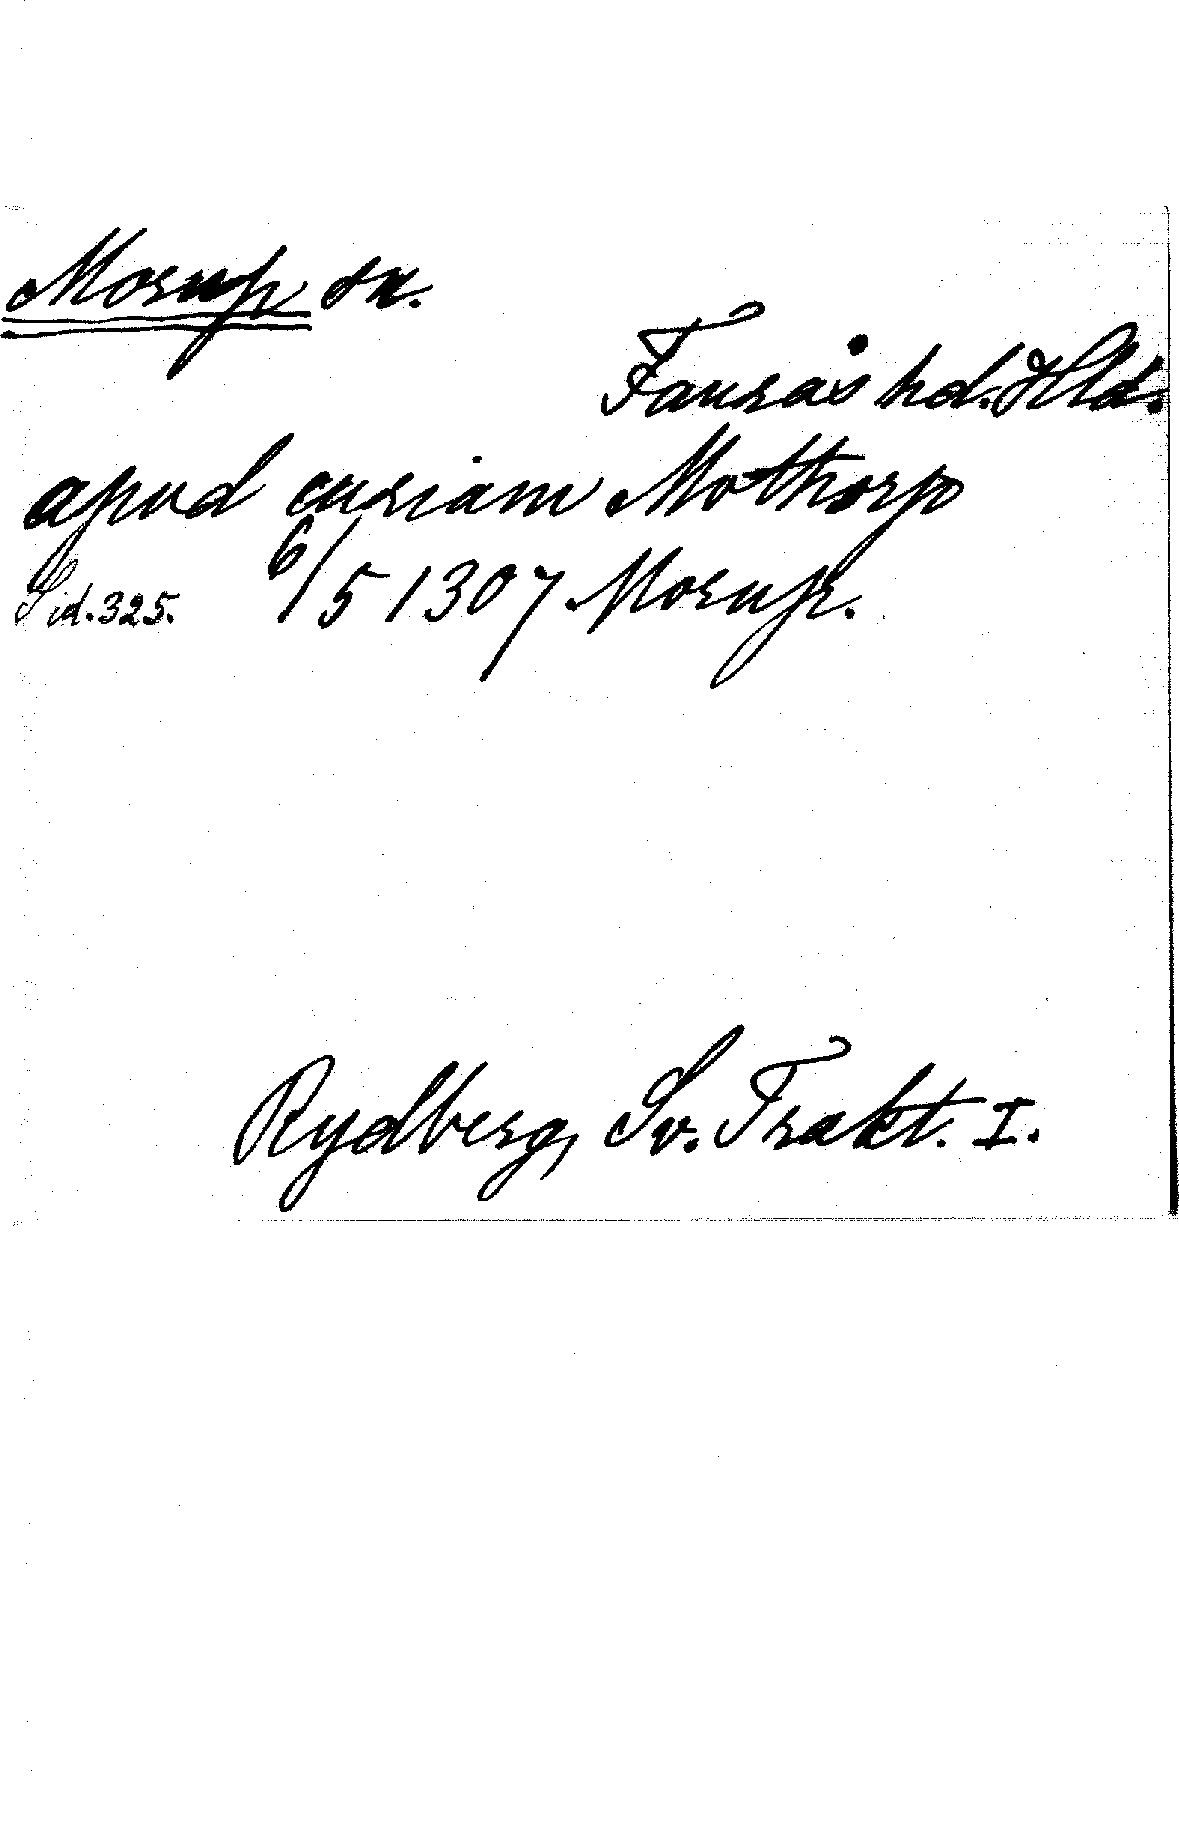 Morup sn.
Faurås hd. Hld.
apud curiam Mothorp
Sid. 325. 6/5 1307 Morup.
Rydberg, Sv. Trakt. I.